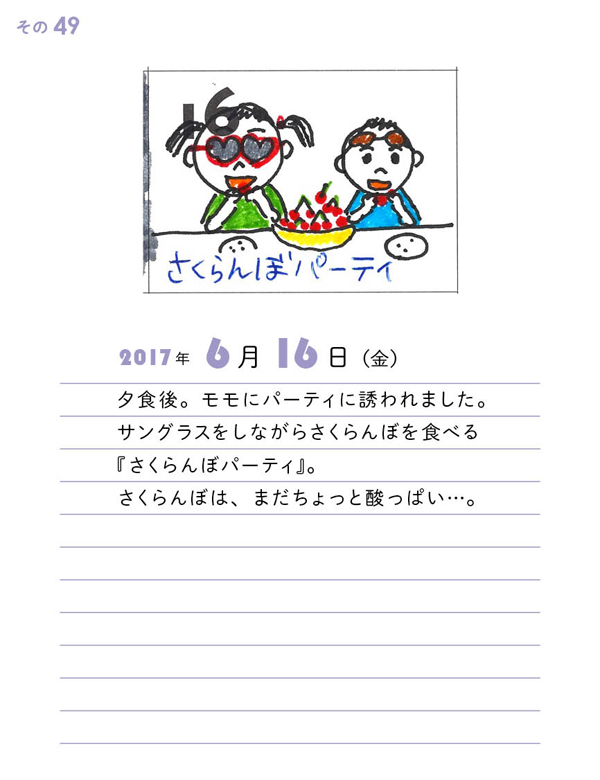 その 49
16
さくらんぼパーティ
2017年 6月16日（金）
夕食後。モモにパーティに誘われました。
サングラスをしながらさくらんぼを食べる
『さくらんぼパーティ』。
さくらんぼは、まだちょっと酸っぱい…。